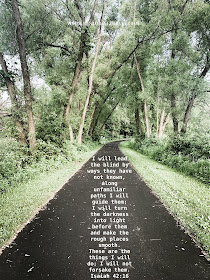 I will lead
the blind by
ways they have
not known,
along
unfamiliar
paths I will
guide them;
I will turn
the darkness
into light
before them
and make the
rough places
smooth.
These are the
things I will
do; I will not
forsake them.
Isaiah 42:16